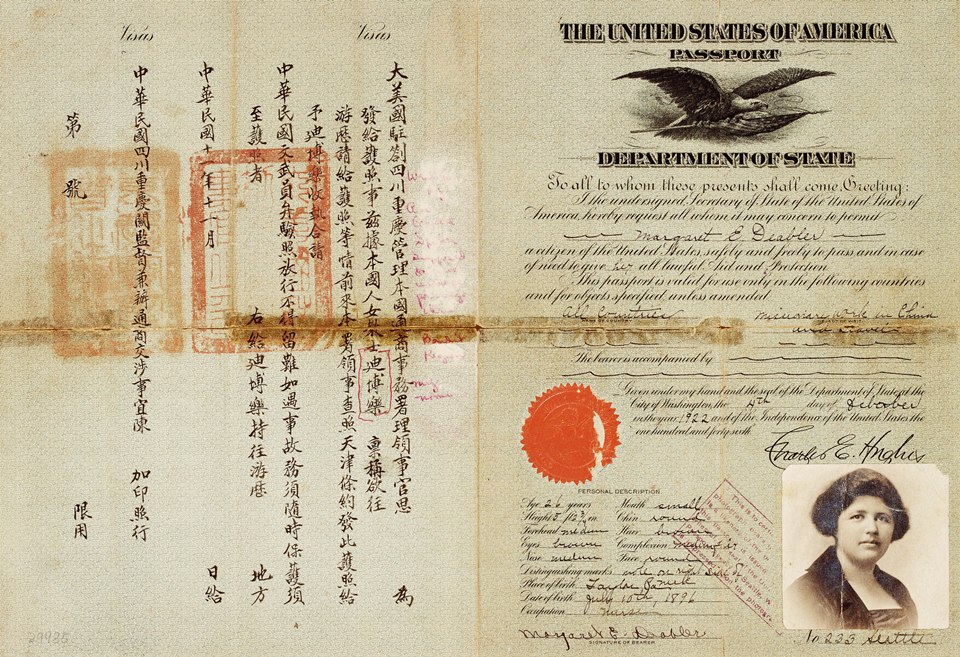 Visas
Visas
大美國駐劄四川重慶管理本國通商事務署理領事官思 為
發給護照事茲據本國人女士迪博樂 稟稱欲往
游歷請給護照等情前來本署領事查照天津條約發此護照給
予迪博樂收執合請
中華民國文武員弁驗照放行不得留難如遇事故務須隨時保護須
至護照者 右給迪博樂持往游歷 地方
中華民國十一年十一月 日給
中華民國四川重慶關監督兼辦通商交涉事宜陳 加印照行
第 號 限用
THE UNITED STATES OF AMERICA
PASSPORT
DEPARTMENT OF STATE
To all to whom these presents shall come, Greeting:
I the undersigned Secretary of State of the United States of
America, hereby request all whom it may concern to permit
Margaret E. Deabler
a citizen of the United States, safely and freely to pass and in case
of need to give her all lawful Aid and Protection.
This passport is valid for use only in the following countries
and for objects specified, unless amended.
All Countries Missionary Work in China
and Travel
The bearer is accompanied by
Given under my hand and the seal of the Department of State at the
City of Washington, the 4th day of October
in the year 1922 and of the Independence of the United States the
one hundred and forty sixth
Charles E. Hughes
PERSONAL DESCRIPTION
Age 26 years Mouth small
Height 5 ft 2 in. Chin round
Forehead medium Hair brown
Eyes brown Complexion medium
Nose medium Face round
Distinguishing marks mole on right
Place of birth Taylor
Date of birth July 10th, 1896
Occupation Nurse
Margaret E. Deabler
SIGNATURE OF BEARER
No 233 Seattle